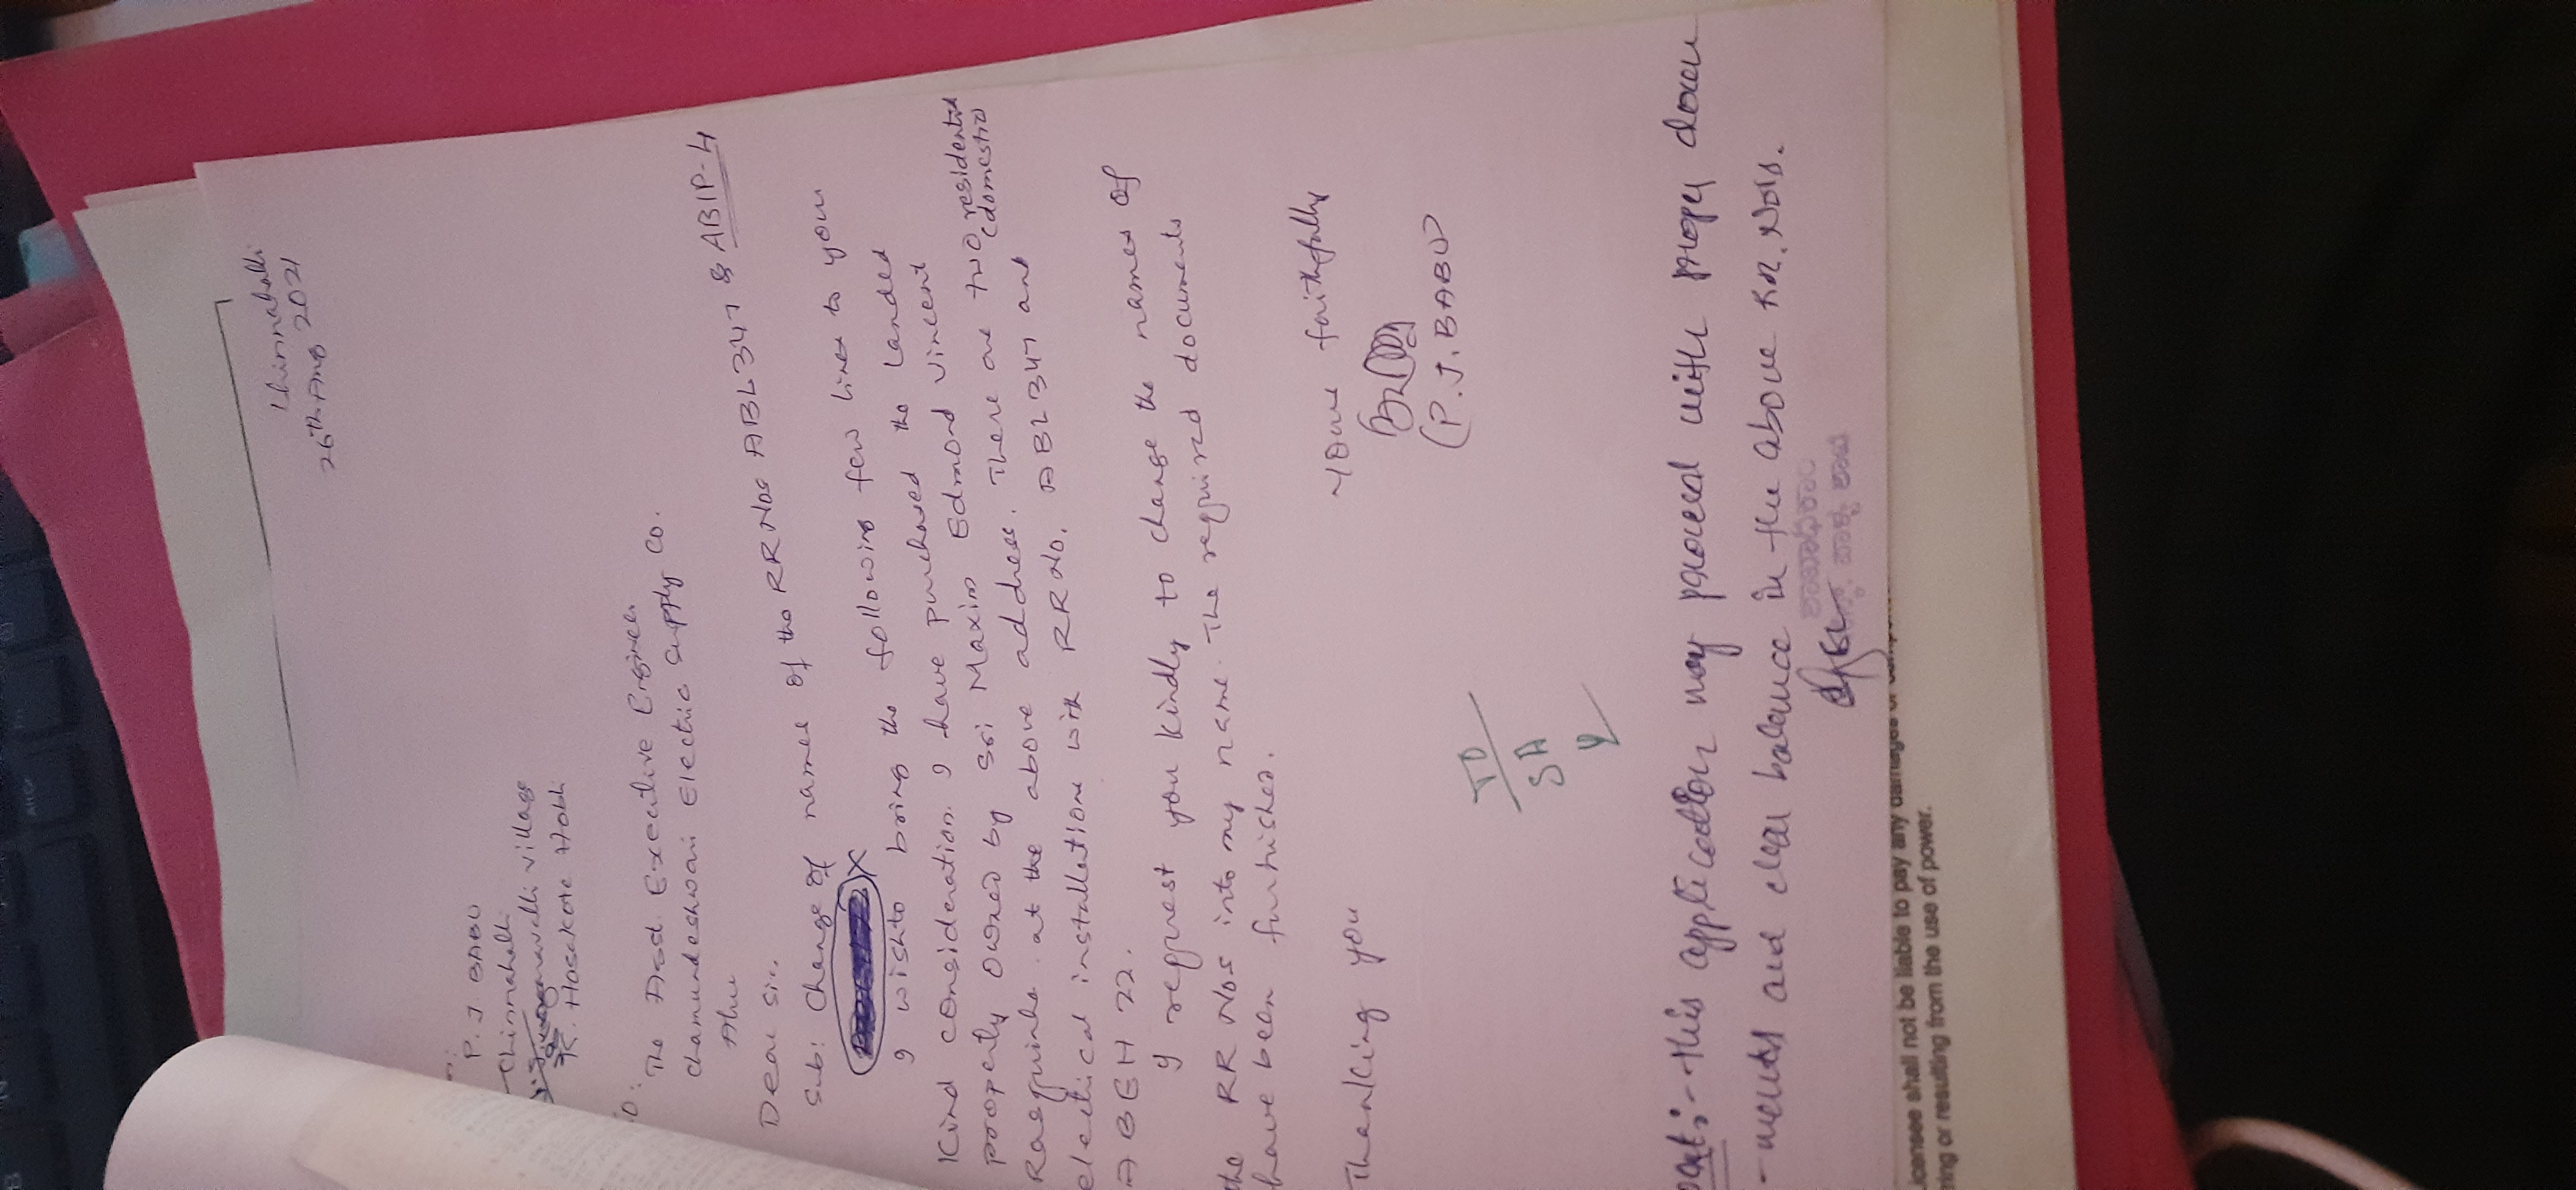 Chinnahalli
26th Aug 2021
P. J BABU
Chinnahalli
village
K. Hosakote Hobli
The Asst. Executive Engineer
chamundeshwari Electric supply Co.
Alur
Dear Sir.
Sub: Change of names of the RR Nos ABL347 & ABIP-4
I wish to bring the following few lines to your
kind consideration. I have purchased the landed
property owned by Sri Maxim Edmond Vincent
Rasquinha. at the above address. There are two residential
(domestic)
electrical installations with RR No. ABL347 and
ABEH 22.
I request you kindly to change the names of
the RR Nos into my name. The required documents
have been furnished.
Thanking you
Yours faithfully
(P. J. BABU)
TO
SA
:- this application may proceed with proper docu
-ments and clear balance in the above RR. No's.
Licensee shall not be liable to pay any damages or
ring or resulting from the use of power.